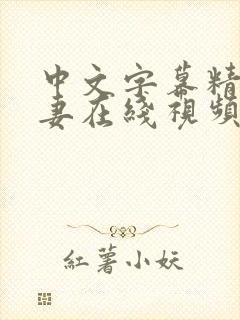 中文字幕精
妻在綫視頻
紅薯小妖